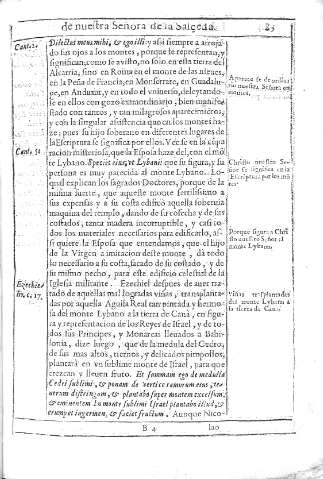 de nuestra Señora de la Salceda.
Cant. 2.
Dilectus meus mihi, & ego illi: y assi siempre a arroja-
do sus ojos a los montes, porque se representan, y
significan, como se a visto, no solo en esta tierra del
Alcarria, sino en Roma en el monte de las nieues,
en la Peña de Francia, en Monserrate, en Guadalu-
pe, en Anduxar, y en todo el vniuerso, deleytando-
se en ellos con gozo extraordinario, bien manifes
tado con tantos, y tan milagrosos aparecimiētos,
y con la singular assistencia que en los montes ha-
ze; pues su hijo soberano en diferentes lugares de
la Escriptura se significa por ellos. Vease en la
racion misteriosa, que la Esposa haze del, con el mō
te Lybano. Species eius, vt Lybani: que su figura, y su
persona es muy parecida al monte Lybano. Lo-
qual explican los sagrados Doctores, porque de la
misma suerte, que aqueste monte fertilissimo a
sus expensas y a su costa edificò aquella soberuia
maquina del templo, dando de su cosecha y de sus
costados, tanta madera incorruptible, y casi to-
dos los materiales necessarios para edificarlo, as-
si quiere la Esposa que entendamos, que el hijo
de la Virgen a imitacion deste monte, dà todo
lo necessario a su costa, sacado de su costado, y de
su mismo pecho, para este edificio celestial de la
Iglesia militante. Ezechiel despues de auer tra-
tado de aquellas mal logradas viñas, transplanta-
das por aquella Aguila Real tan pintada y hermo-
sa del monte Lybano a la tierra de Canà, en figu-
ra y representacion de los Reyes de Israel, y de to-
dos sus Principes, y Monarcas lleuados a Babi-
lonia, dize luego, que de la medula del Cedro,
de sus mas altos, tiernos, y delicados pimpollos,
plantarà en un sublime monte de Israel, para que
crezcan y lleuen fruto. Et sumam ego de medulla
Cedri sublimi, & ponam de vertice ramorum eius, te-
nerum distringam, & plantabo super montem excelsum,
& eminentem in monte sublimi Israel plantabo illud, &
erumpet in germen, & faciet fructum. Aunque Nico-
B 4
lao
Cant. 5.
Ezechiel
17.
Christo nuestro Se-
Porque figura a Chris
to nuestro Señor el
monte Lybano.
Viñas transplantadas
del monte Lybano a
la tierra de Canà.